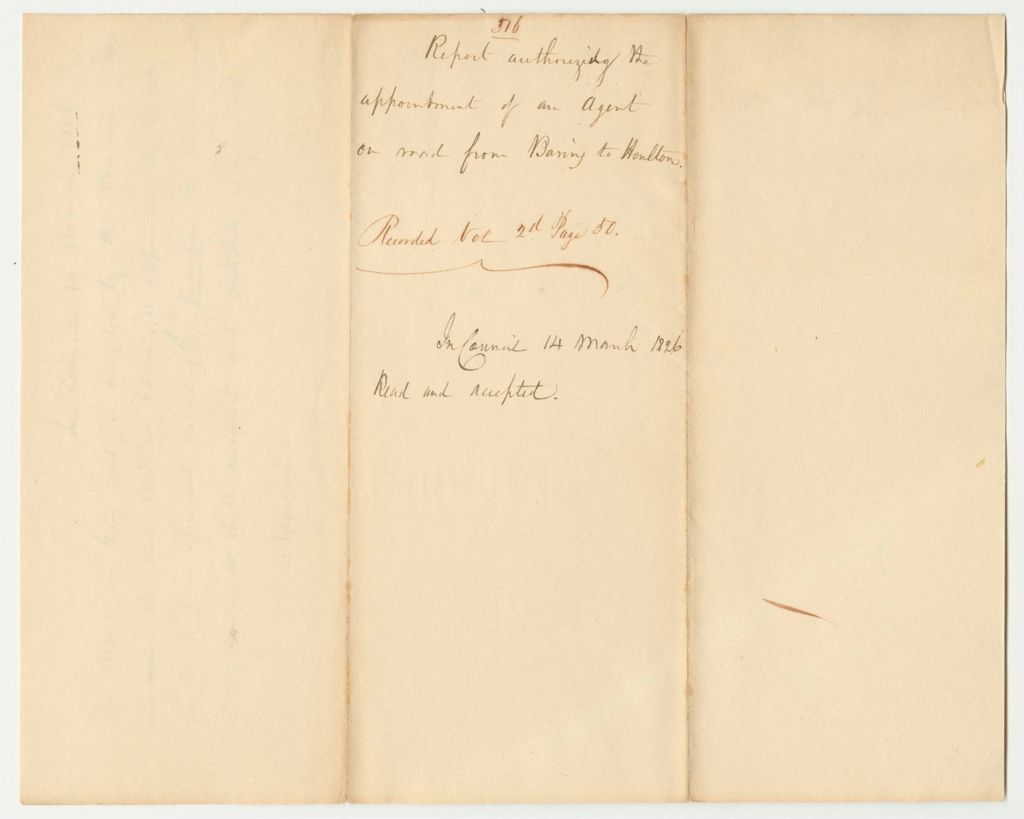 516
Report authorizing the
appointment of an Agent
on road from Baring to Houlton.
Recorded Vol 2d Page 50.
In Council 14 March 1826
Read and accepted.